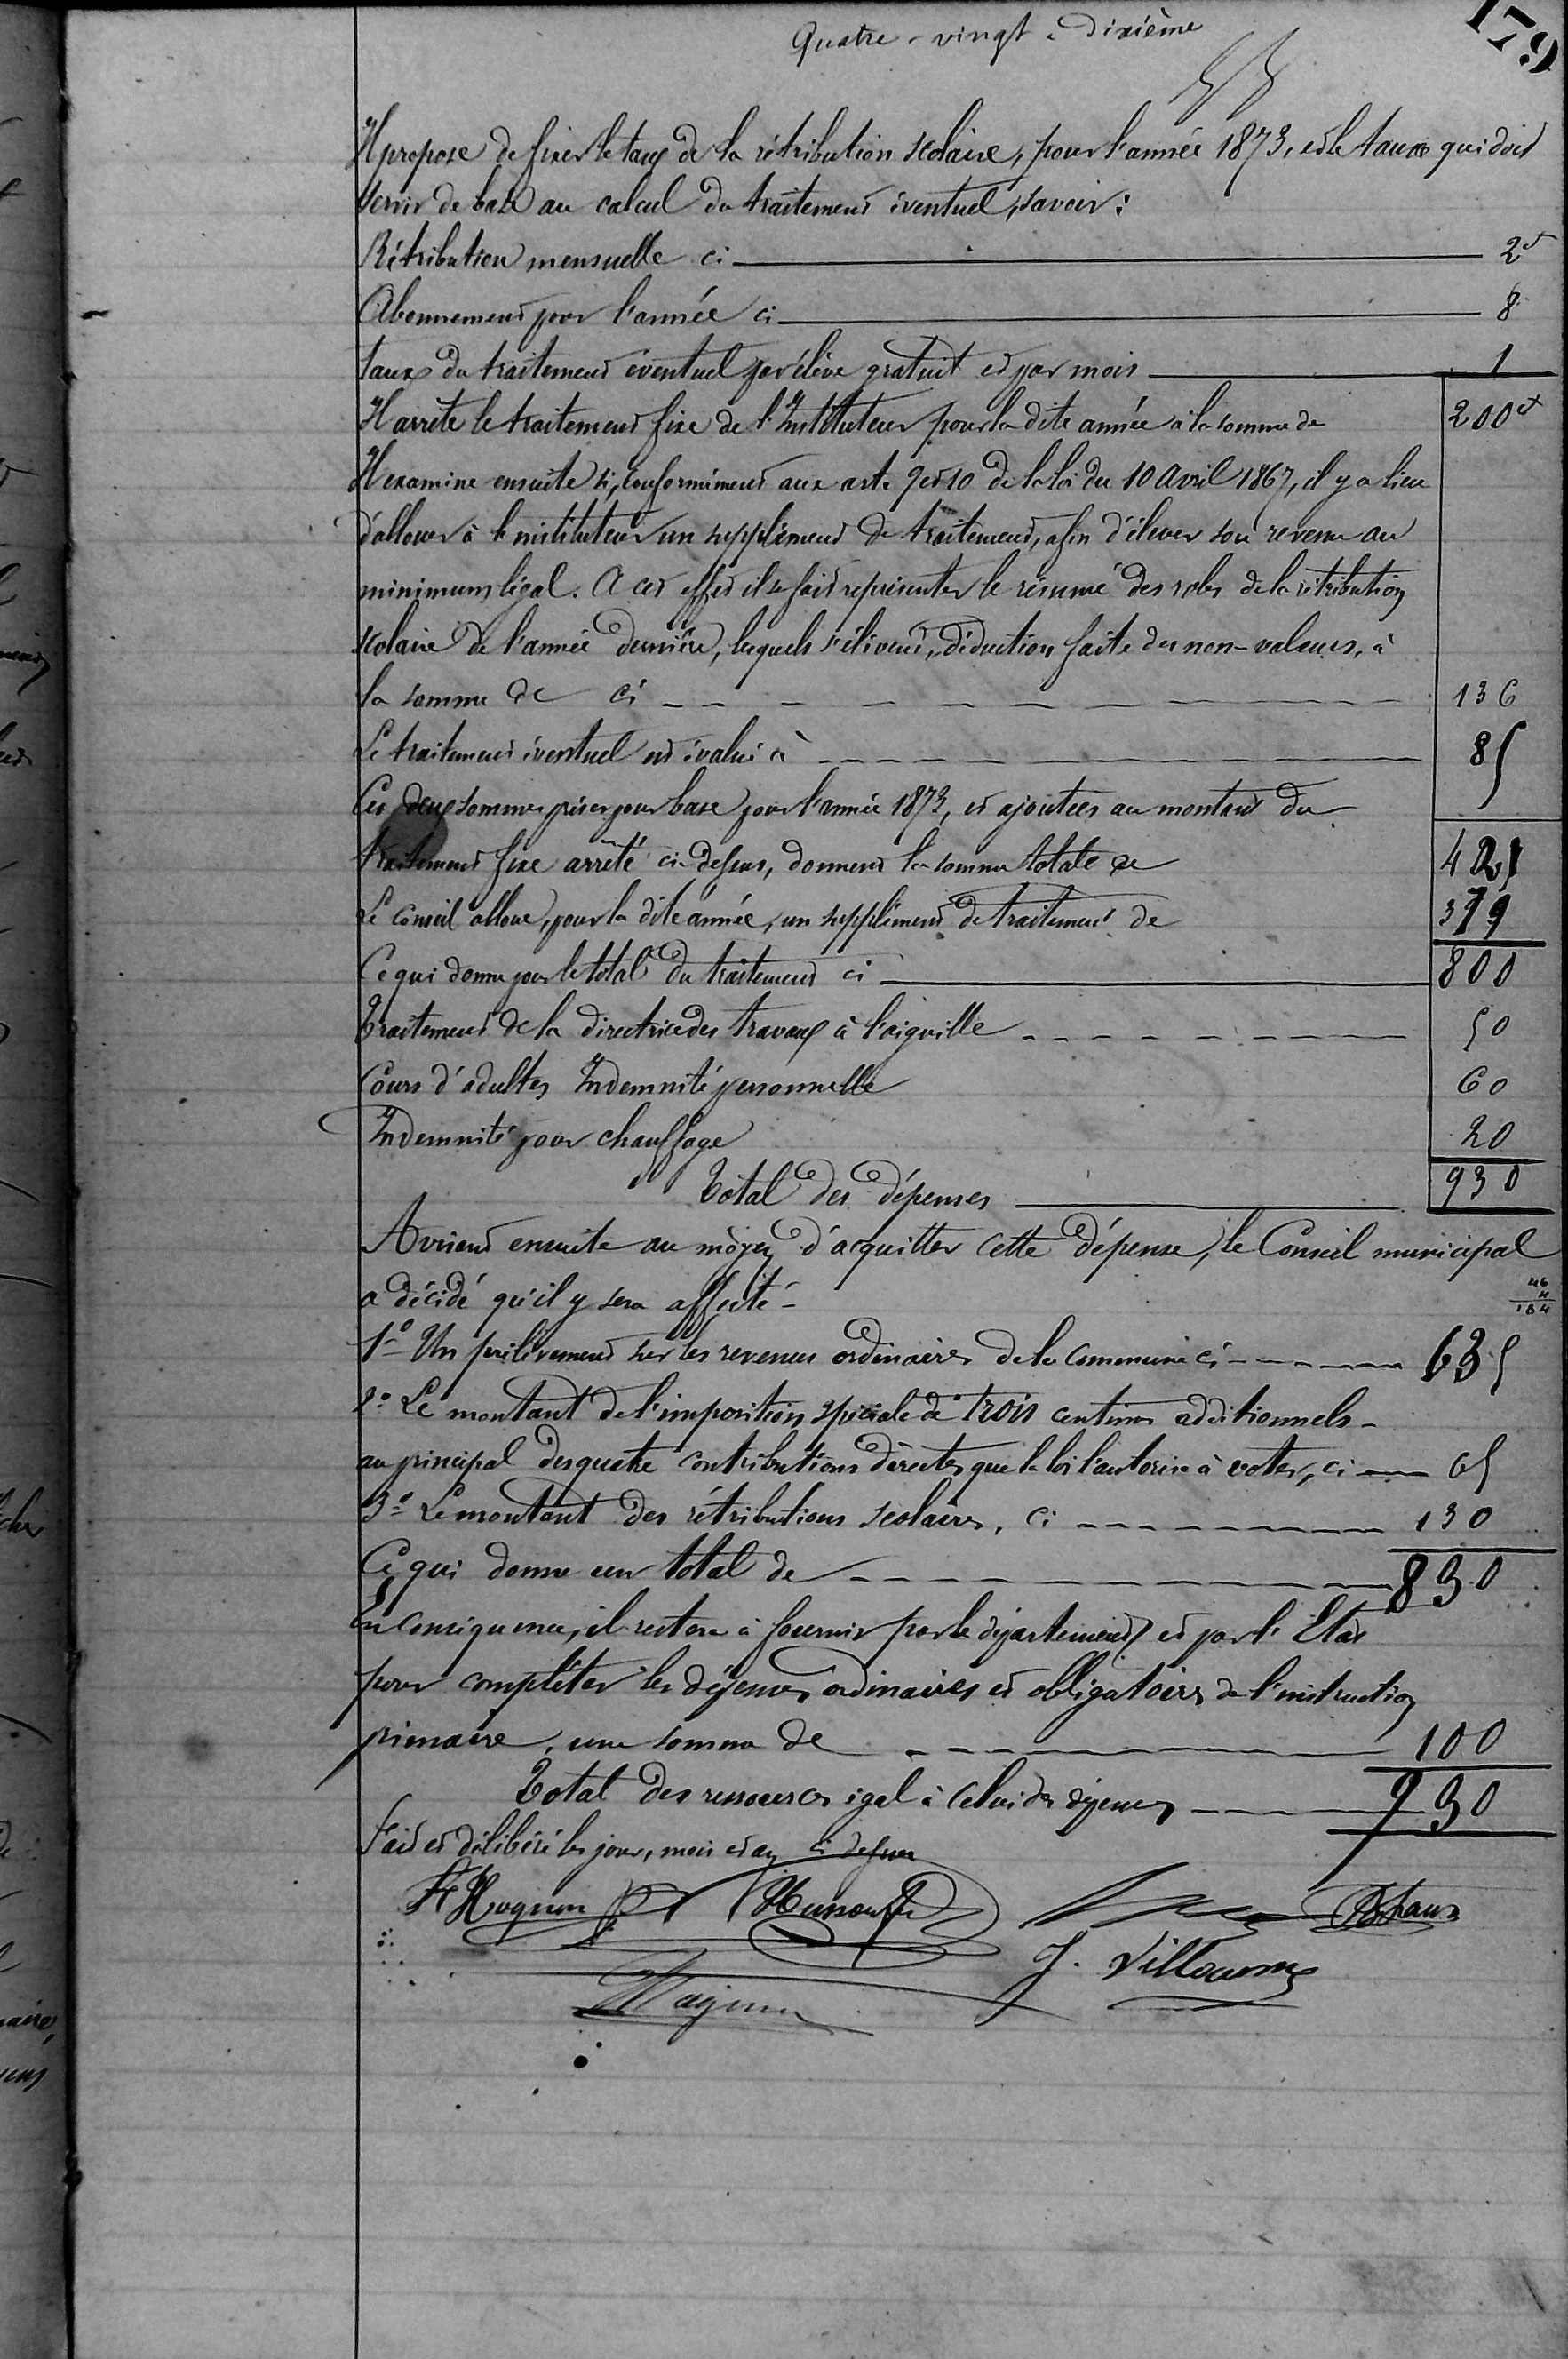 Quatre-vingt-dixième
179
Il propose de fixer le taux de la rétribution scolaire, pour l'année 1873, et le taux qui doit
servir de base au calcul du traitement éventuel, savoir :
Rétribution mensuelle ci 2f
Abonnement pour l'année ci 8
taux du traitement éventuel par élève gratuit et par mois 1
Il arrête le traitement fixe de l'Instituteur pour la dite année à la somme de 200f
Il examine ensuite si, conformément aux art. 9 et 10 de la loi du 10 Avril 1867, il y a lieu
d'allouer à l'instituteur un supplément de traitement, afin d'élever son revenu au
minimum légal. A cet effet il se fait représenter le résumé des roles de la rétribution
scolaire de l'année dernière, lesquels s'élèvent, déduction faite des non-valeurs, à
la somme de ci 136
Le traitement éventuel est évalué à 85
Ces deux sommes prises pour base pour l'année 1873, et ajoutées au montant du
traitement fixe arrêté ci-dessus, donnent la somme totale de 421
Le Conseil alloue, pour la dite année, un supplément de traitement de 379
Ce qui donne pour le total du traitement ci 800
Traitement de la directrice des travaux à l'aiguille 50
Cours d'adultes Indemnité personnelle 60
Indemnité pour chauffage 20
Total des dépenses 930
Avisant ensuite au moyen d'acquitter cette dépense, le Conseil municipal
a décidé qu'il y sera affecté -
46
4
184
1° Un prélèvement sur les revenus ordinaires de la commune ci 635
2° Le montant de l'imposition spéciale de trois centimes additionnels -
au principal des quatre contributions directes que la loi l'autorise à voter, ci 65
3° Le montant des rétributions scolaires, ci 130
Ce qui donne un total de 830
En conséquence, il restera à fournir par le département et par l'Etat
pour compléter les dépenses ordinaires et obligatoires de l'instruction
primaire, une somme de 100
Total des ressources égal à celui des dépenses 930
Fait et délibéré les jour, mois et an ci dessus
J. Villaume